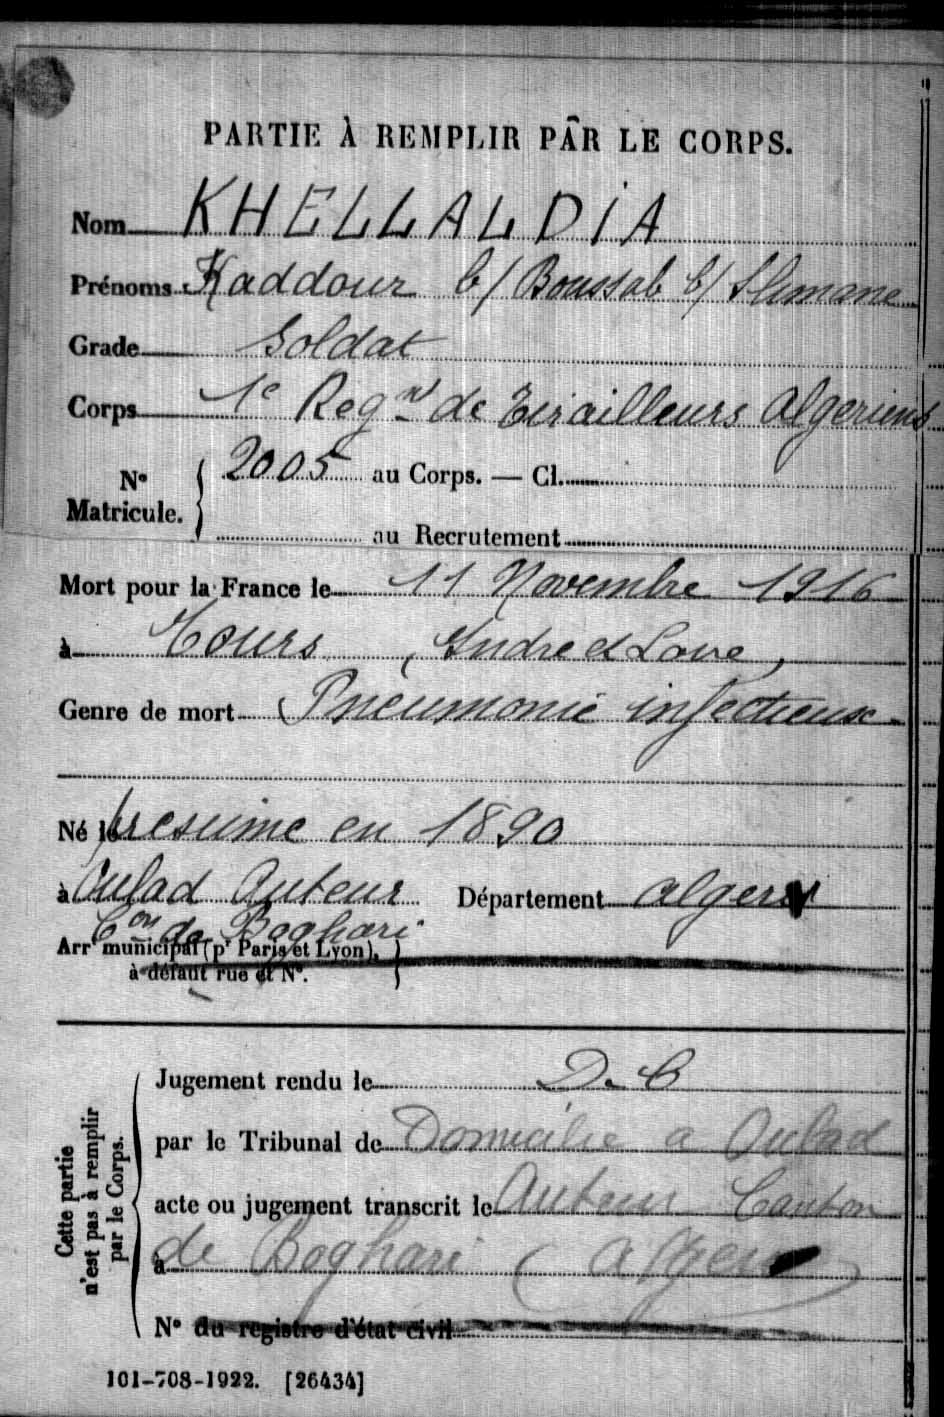 PARTIE À REMPLIR PAR LE CORPS.
Nom KHELLALDIA
Prénoms Kaddour b/ Boussab b/ Slimane
Grade Soldat
Corps 1e Regnt de Tirailleurs Algeriens
No Matricule. { 2005 au Corps. — Cl.
au Recrutement
Mort pour la France le 11 Novembre 1916
à Tours (Indre et Loire)
Genre de mort Pneumonie infectieuse
Né le presumé en 1890
à Oulad Anteur Département Alger
Con de Boghari
Arrt municipal (pr Paris et Lyon), }
à défaut rue et No.
Cette partie n'est pas à remplir par le Corps.
Jugement rendu le D. C
par le Tribunal de Domicilié a Oulad
acte ou jugement transcrit le Anteur Canton
à de Boghari (Alger)
No du registre d'état civil
101-708-1922. [26434]